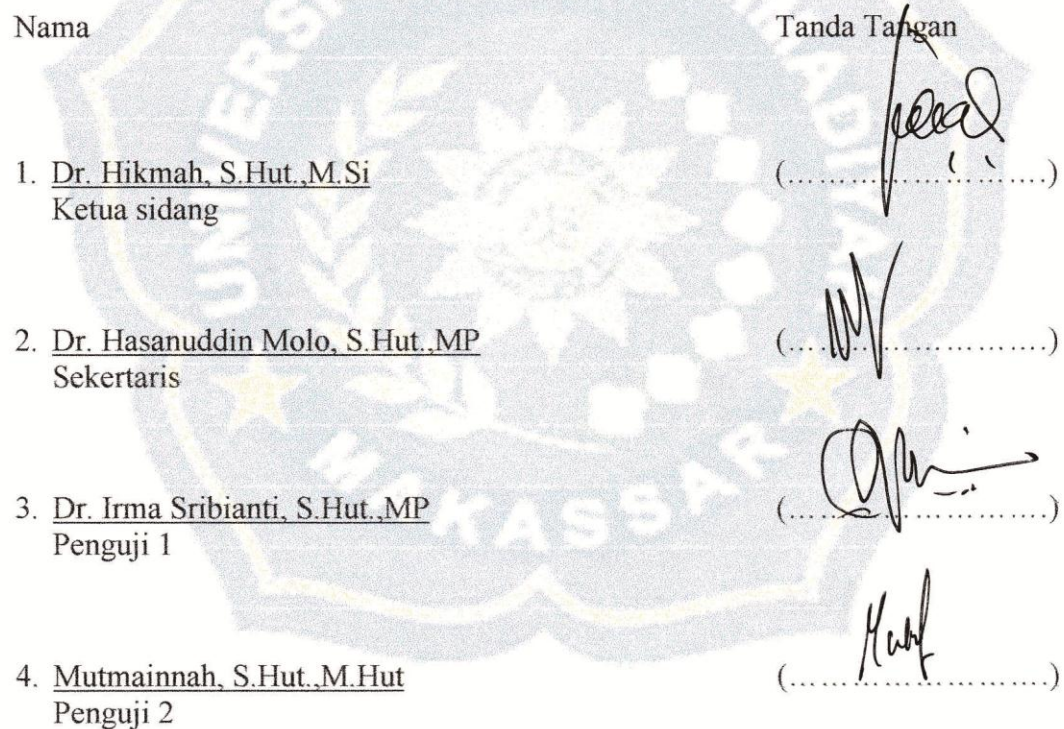 Nama Tanda Tangan
1. Dr. Hikmah, S.Hut.,M.Si (……………………….)
Ketua sidang
2. Dr. Hasanuddin Molo, S.Hut.,MP (……………………….)
Sekertaris
3. Dr. Irma Sribianti, S.Hut.,MP (……………………….)
Penguji 1
4. Mutmainnah, S.Hut.,M.Hut (……………………….)
Penguji 2
MAKASSAR